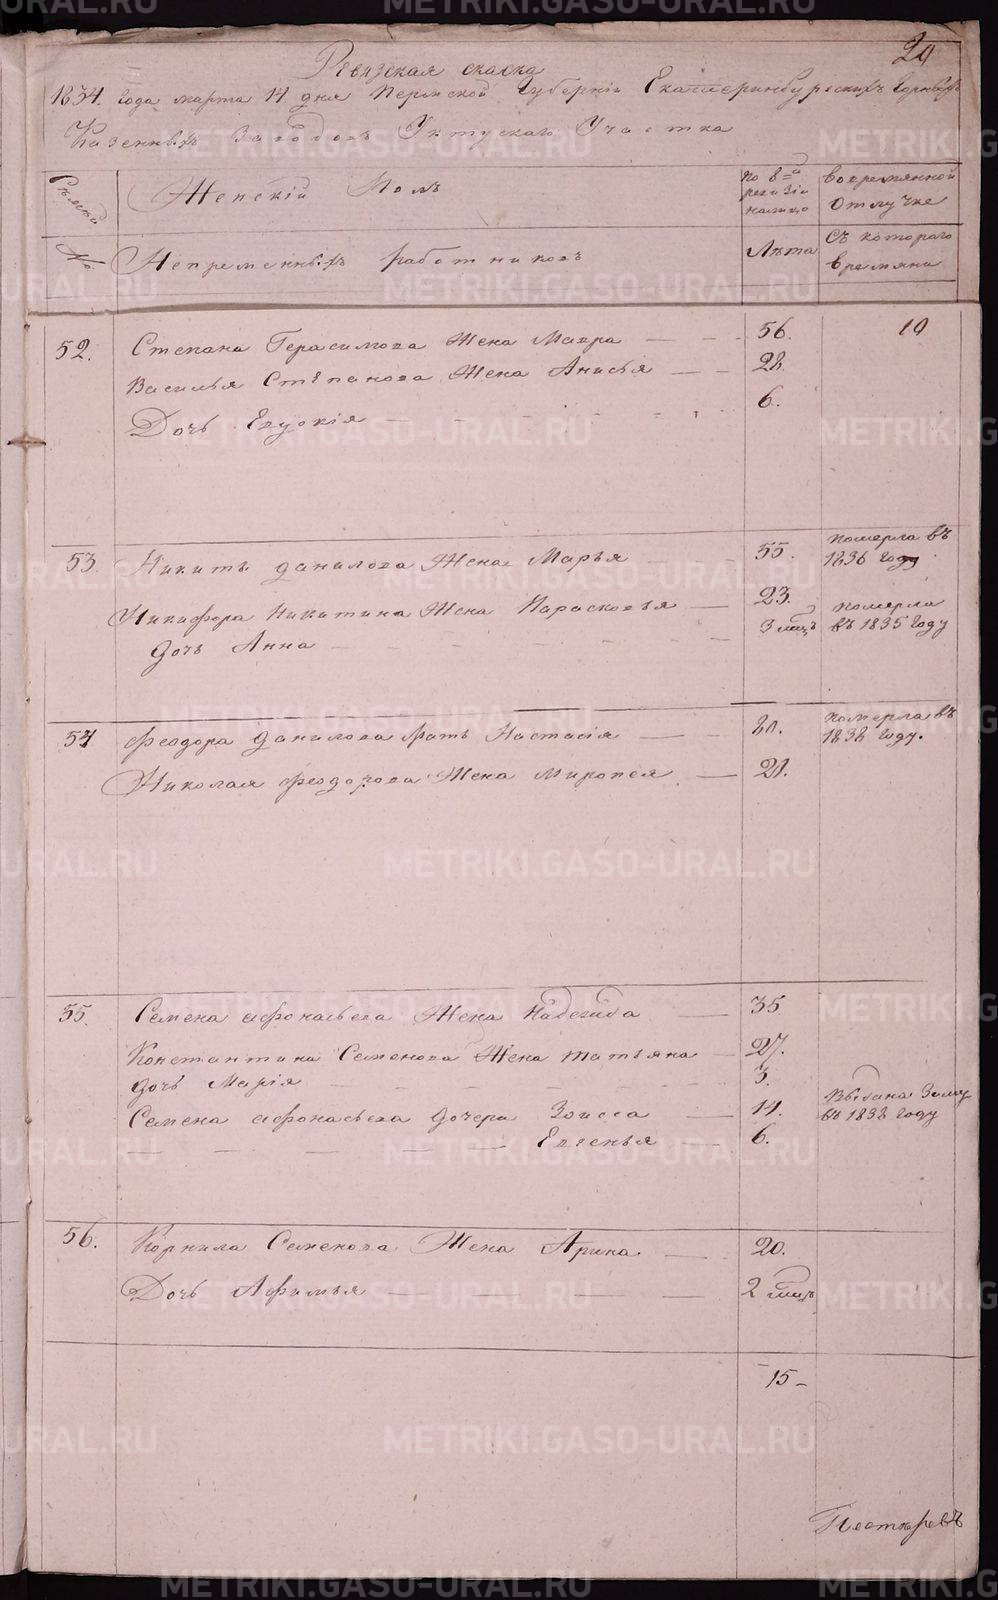 20
Ревизская скаска
1834. года марта 14 дня Пермской Губерніи Екатеринбургскихъ Горныхъ
Казенныхъ Заводовъ Уктускаго Участка
Женскій Полъ
по 8=й ревизіи налицо
во времянной отлучке
№
Непременныхъ работниковъ
Лѣта
съ котораго времяни
52. Степана Герасимова Жена Мавра 56. 19
Василья Степанова Жена Анисья 28.
Дочь Евдокія 6.
53. Никиты Данилова Жена Марья 55. померла въ 1836 году
Никифора Никитина Жена Парасковья 23. померла
дочь Анна 3 мцъ въ 1835 году
54 Феодора Данилова мать Настасія померла въ 1838 году.
Николая Феодорова Жена Миропея 21.
55. Семена Афонасьева Жена Надежда 35
Константина Семенова Жена татьяна 27.
дочь Марія 3.
Семена Афонасьева дочери 14. замуж въ 1838 году
Евгенья 6.
56. Корнила Семенова Жена Арина 20.
Дочь Афимья 2 мцъ
15
METRIKI.GASO-URAL.RU